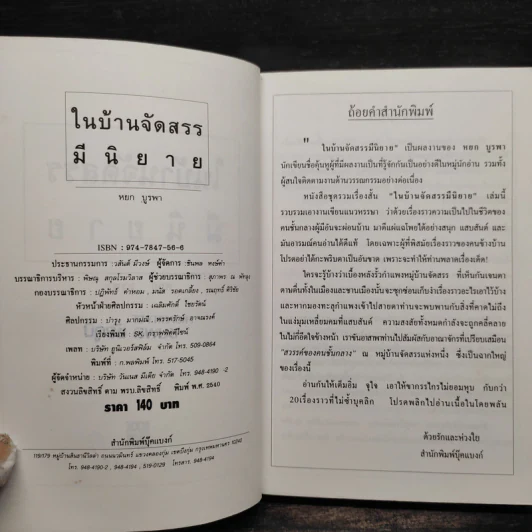 ในบ้านจัดสรร
มีนิยาย
หยก บูรพา
ISBN : 974-7847-56-6
ประธานกรรมการ : วสันต์ มีวงษ์ ผู้จัดการ : ชินพล พงษ์คำ
บรรณาธิการบริหาร : พิษณุ สกุลโรมวิลาส ผู้ช่วยบรรณาธิการ : สุภาพร ณ พัทลุง
กองบรรณาธิการ : ปฏิพัทธ์ คำหอม , มนัส รอดเกลี้ยง , รณฤทธิ์ ศิริชัย
หัวหน้าฝ่ายศิลปกรรม : เฉลิมศักดิ์ ไชยรัตน์
ศิลปกรรม : บำรุง มากมณี , พรรครักษ์ อาจณรงค์
เรียงพิมพ์ : SK. กราฟฟิคดีไซน์
เพลท : บริษัท ยูนิเวอร์สฟิล์ม จำกัด โทร. 509-0864
พิมพ์ที่ : ก.พลพิมพ์ โทร. 517-5045
ผู้จัดจำหน่าย : บริษัท วันเนส มีเดีย จำกัด โทร. 948-4190 -2
สงวนลิขสิทธิ์ ตาม พรบ.ลิขสิทธิ์ พิมพ์ พ.ศ. 2540
ราคา 140 บาท
สำนักพิมพ์บุ๊คแบงก์
119/179 หมู่บ้านสินธานีวิลล่า ถนนนวมินทร์ แขวงคลองกุ่ม เขตบึงกุ่ม กรุงเทพมหานคร 10240
โทร. 948-4190-2 , 948-4194 , 519-0129 โทรสาร. 948-4194
ถ้อยคำสำนักพิมพ์
" "ในบ้านจัดสรรมีนิยาย" เป็นผลงานของ หยก บูรพา
นักเขียนชื่อคุ้นหูผู้ที่มีผลงานเป็นที่รู้จักกันเป็นอย่างดีในหมู่นักอ่าน รวมทั้ง
ผู้สนใจติดตามงานด้านวรรณกรรมอย่างต่อเนื่อง
หนังสือชุดรวมเรื่องสั้น "ในบ้านจัดสรรมีนิยาย" เล่มนี้
รวบรวมเอางานเขียนแนวหรรษา ว่าด้วยเรื่องราวความเป็นไปในชีวิตของ
คนชั้นกลางผู้มีอันจะผ่อนบ้าน มาตีแผ่แฉโพยได้อย่างสนุก แสบสันต์ และ
มันอารมณ์คนอ่านได้ดีแท้ โดยเฉพาะผู้ที่พิสมัยเรื่องราวของคนข้างบ้าน
โปรดอย่าได้กะพริบตาเป็นอันขาด เพราะจะทำให้ท่านพลาดเรื่องเด็ด!
ใครจะรู้บ้างว่าเบื้องหลังรั้วกำแพงหมู่บ้านจัดสรร ที่เห็นกันเจนตา
ดาษดื่นทั้งในเมืองและชานเมืองนั้นจะซุกซ่อนเก็บงำเรื่องราวอะไรเอาไว้บ้าง
และหากมองทะลุกำแพงเข้าไปสายตาท่านจะพบพานกับสิ่งที่คาดไม่ถึง
ในแง่มุมเหลี่ยมคมที่แสบสันต์ ความสงสัยทั้งหมดกำลังจะถูกคลี่คลาย
ในไม่กี่อึดใจข้างหน้า เราขันอาสาพาท่านไปสัมผัสกับอาณาจักรที่เปรียบเสมือน
"สวรรค์ของคนชั้นกลาง" ณ หมู่บ้านจัดสรรแห่งหนึ่ง ซึ่งเป็นฉากใหญ่
ของเรื่องนี้
อ่านกันให้เต็มอิ่ม จุใจ เอาให้ขากรรไกรไม่ยอมหุบ กับกว่า
20เรื่องราวที่ไม่ซ้ำบุคลิก โปรดพลิกไปอ่านเนื้อในโดยพลัน
ด้วยรักและห่วงใย
สำนักพิมพ์บุ๊คแบงก์